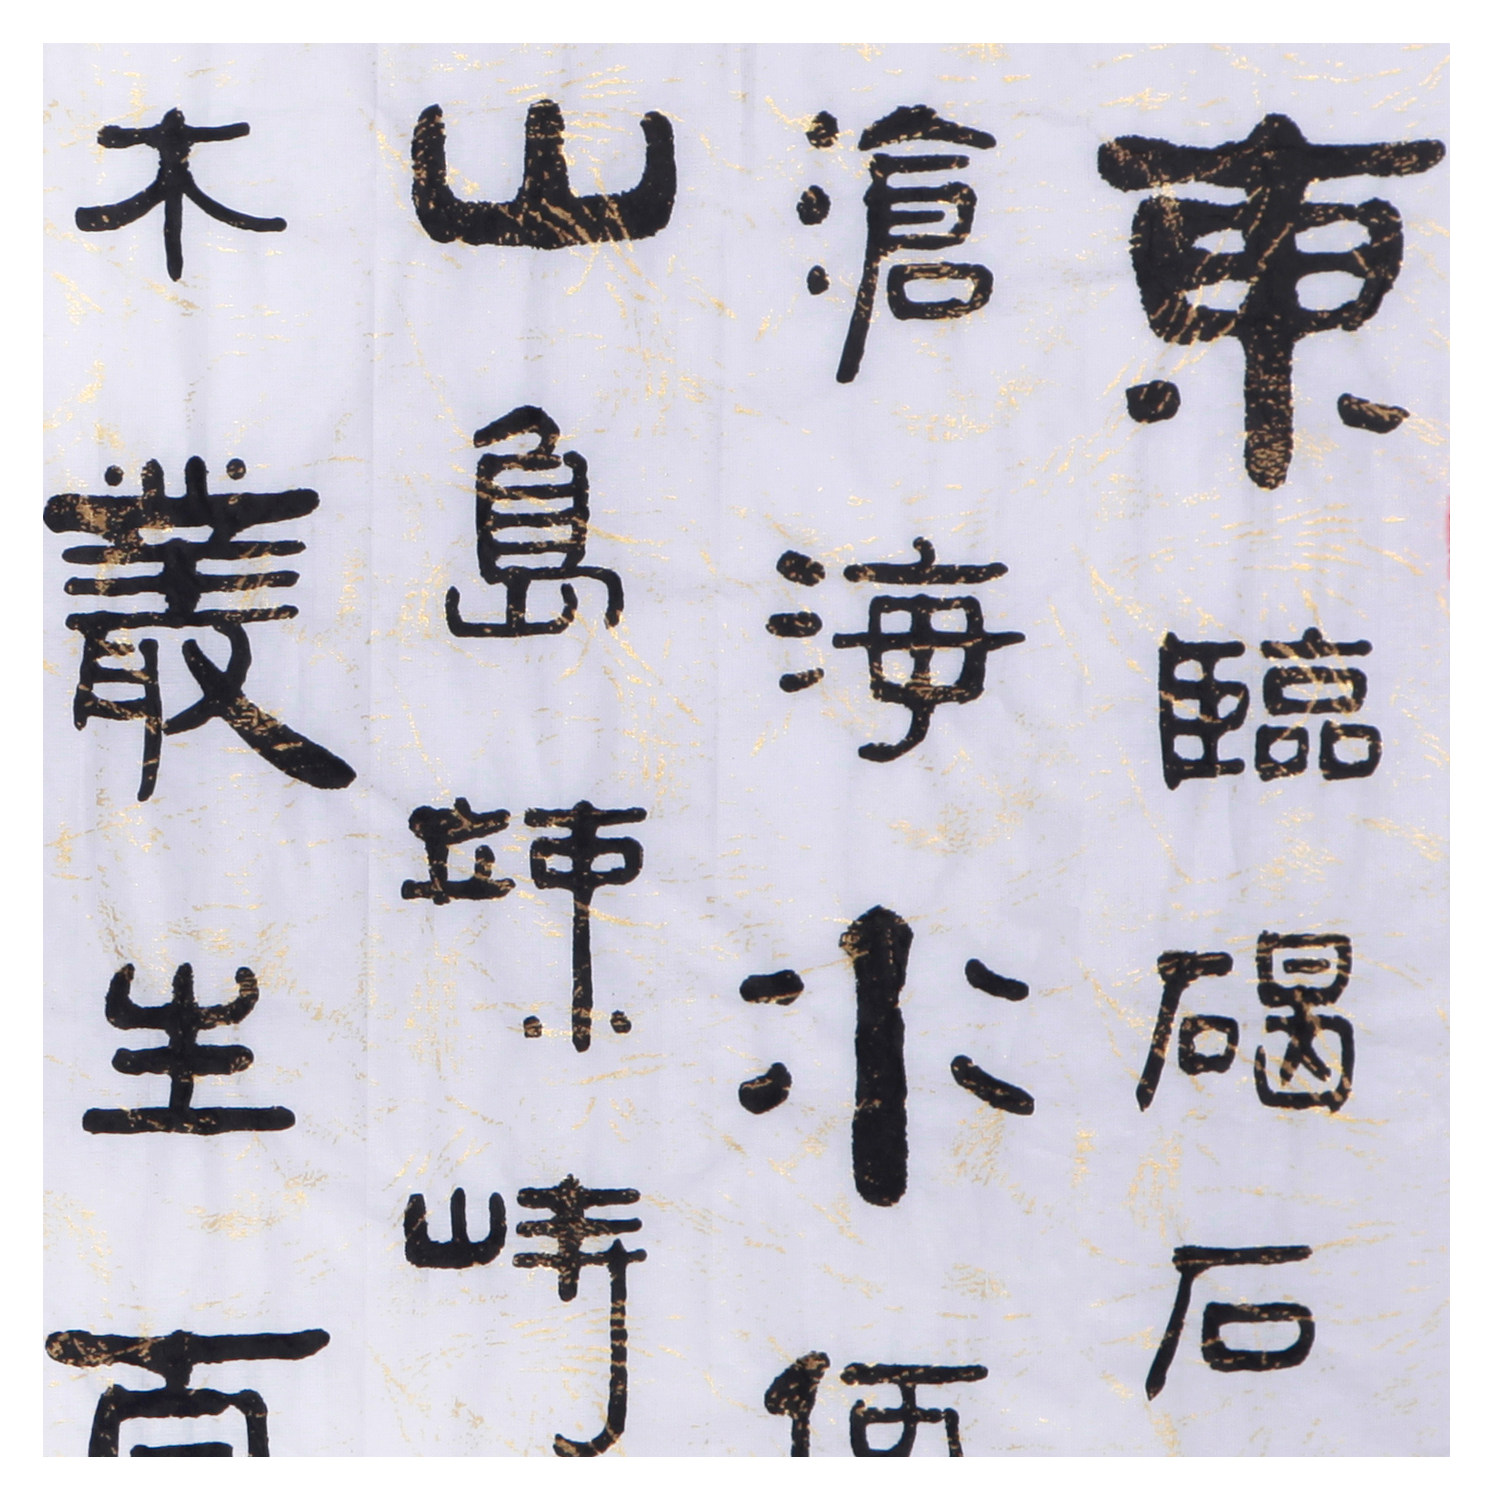 東臨碣石
滄海水何
山島竦峙
木叢生百